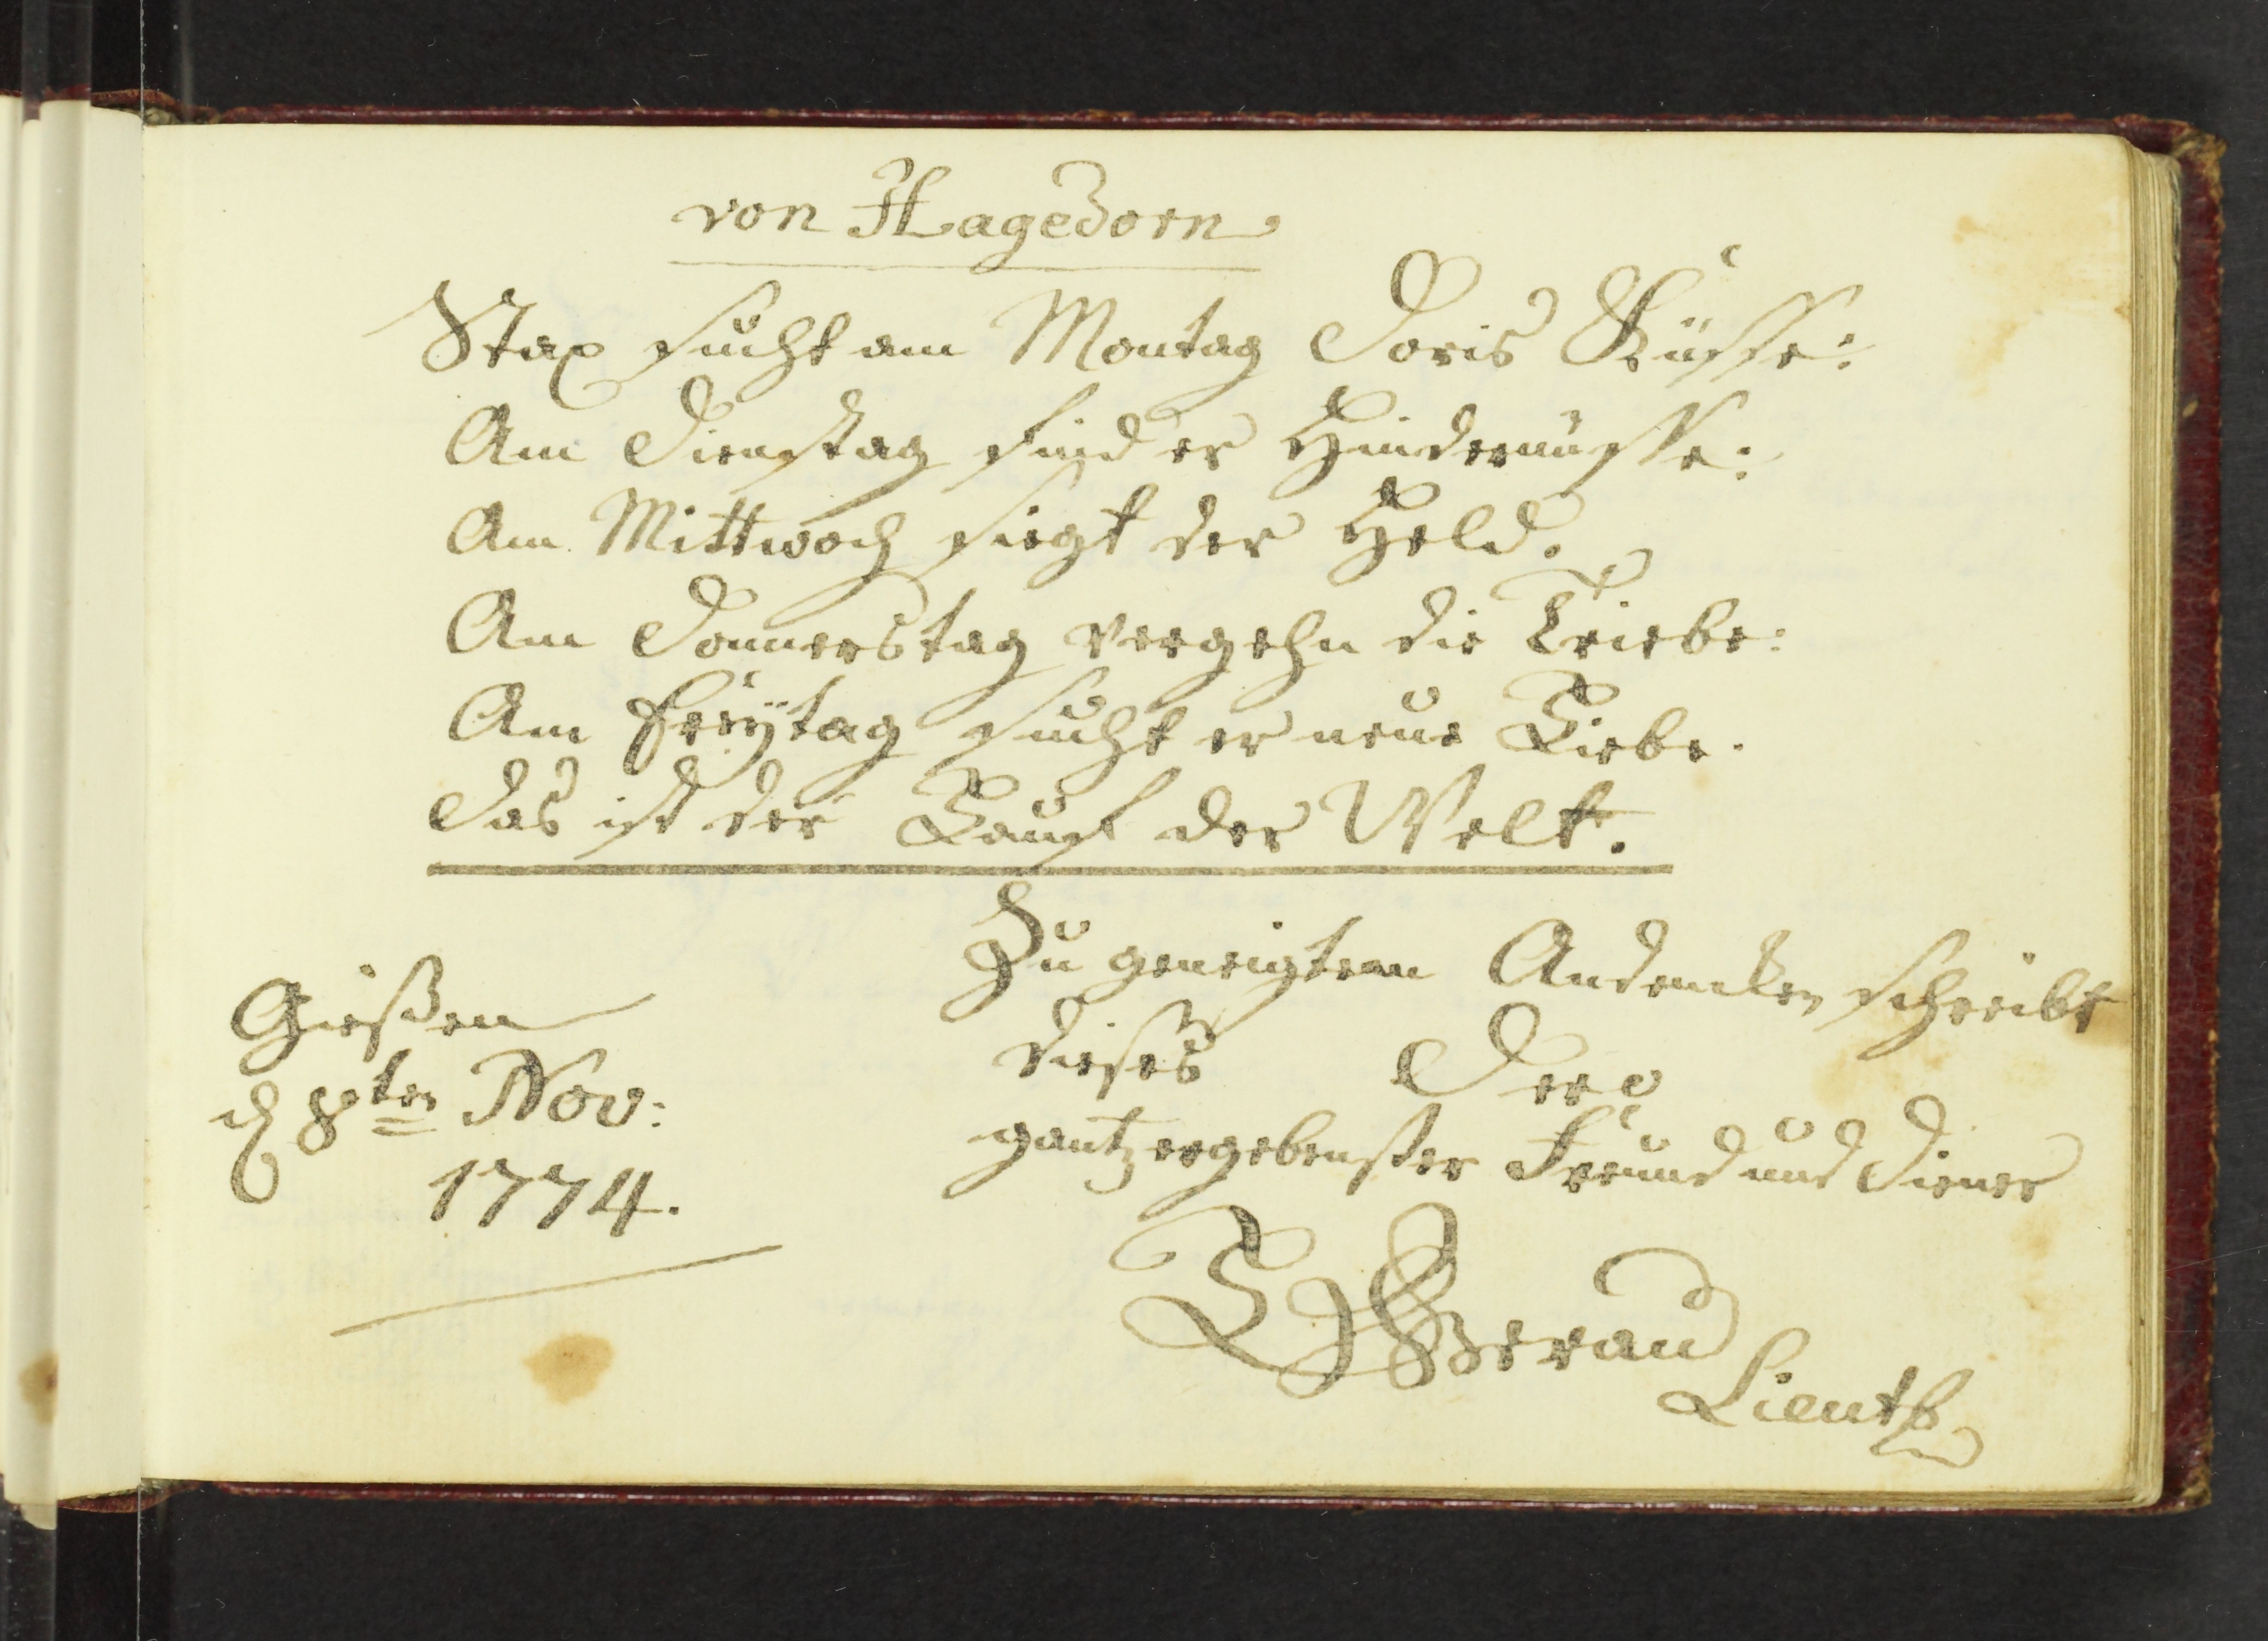 von Hagedorn
Stax sucht am Montag Doris Küsse:
Am Dienstag find er Hindernüsse:
Am Mittwoch siegt der Held.
Am Donnerstag vergehn die Triebe:
Am Freÿtag sucht er neue Liebe.
Das ist der Lauf der Welt.
Zu geneigtem Andencken schreibt
dieses Dero
gantz ergebenster Freund und Diener
Gießen
d 8ten Nov:
1774.
Lieut